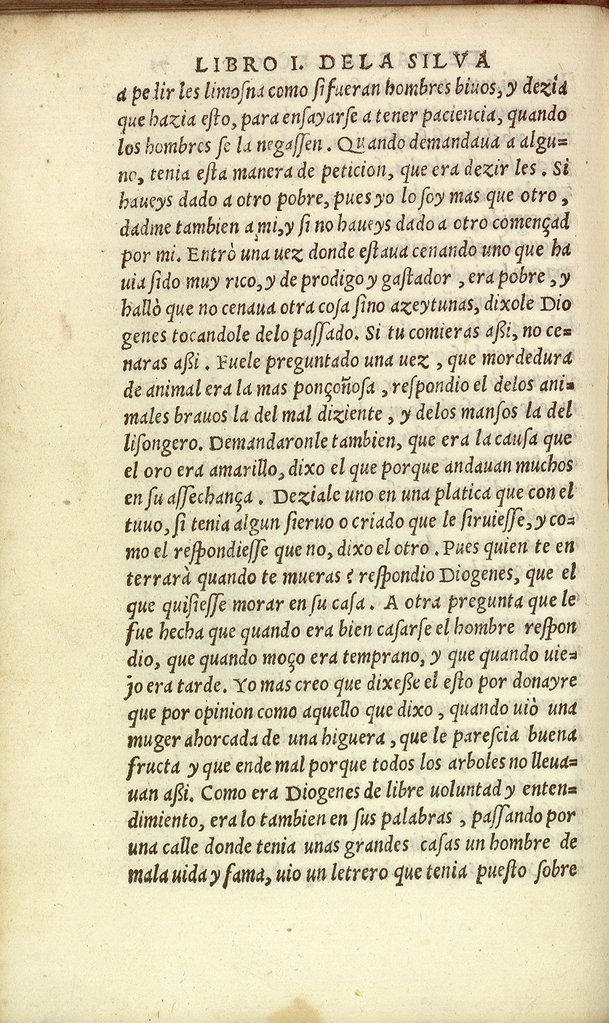 LIBRO I. DE LA SILVA
a pedir les limosna como si fueran hombres biuos, y dezia
que hazia esto, para ensayarse a tener paciencia, quando
los hombres se la negassen. Quando demandaua a algu=
no, tenia esta manera de peticion, que era dezir les. Si
haueys dado a otro pobre, pues yo lo soy mas que otro,
dadme tambien a mi, y si no haueys dado a otro començad
por mi. Entrò una uez donde estaua cenando uno que ha
uia sido muy rico, y de prodigo y gastador, era pobre, y
hallò que no cenaua otra cosa sino azeytunas, dixole Dio
genes tocandole delo passado. Si tu comieras aßi, no ce=
naras aßi. Fuele preguntado una uez, que mordedura
de animal era la mas ponçoñosa, respondio el delos ani=
males brauos la del mal diziente, y delos mansos la del
lisongero. Demandaronle tambien, que era la causa que
el oro era amarillo, dixo el que porque andauan muchos
en su assechança. Deziale uno en una platica que con el
tuuo, si tenia algun sieruo o criado que le siruiesse, y co=
mo el respondiesse que no, dixo el otro. Pues quien te en
terrarà quando te mueras? respondio Diogenes, que el
que quisiesse morar en su casa. A otra pregunta que le
fue hecha que quando era bien casarse el hombre respon
dio, que quando moço era temprano, y que quando uie=
jo era tarde. Yo mas creo que dixeße el esto por donayre
que por opinion como aquello que dixo, quando uiò una
muger ahorcada de una higuera, que le parescia buena
fructa y que ende mal porque todos los arboles no lleua=
uan aßi. Como era Diogenes de libre uoluntad y enten=
dimiento, era lo tambien en sus palabras, passando por
una calle donde tenia unas grandes casas un hombre de
mala uida y fama, uio un letrero que tenia puesto sobre